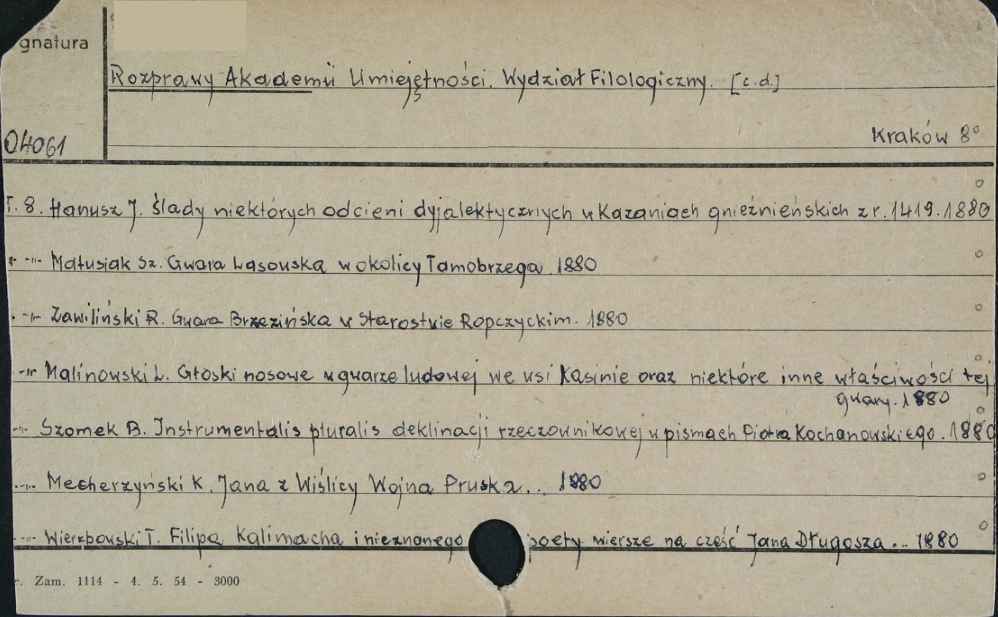 gnatura
Rozprawy Akademii Umiejętności. Wydział Filologiczny. [c.d.]
04061
Kraków 8°
T. 8. Hanusz J. Ślady niektórych odcieni dyjalektycznych w Kazaniach gnieźnieńskich z r. 1419. 1880
-"- Matusiak Sz. Gwara Lasowska w okolicy Tarnobrzega 1880
-"- Zawiliński R. Gwara Brzezińska w Starostwie Ropczyckim. 1880
-"- Malinowski L. Głoski nosowe w gwarze ludowej we wsi Kasinie oraz niektóre inne właściwości tej
gwary. 1880
-"- Szomek B. Instrumentalis pluralis deklinacji rzeczownikowej w pismach Piotra Kochanowskiego. 1880
-"- Mecherzyński K. Jana z Wiślicy Wojna Pruska... 1880
-"- Wierzbowski T. Filipa Kalimacha i nieznanego poety wiersze na cześć Jana Długosza... 1880
r. Zam. 1114 - 4. 5. 54 - 3000